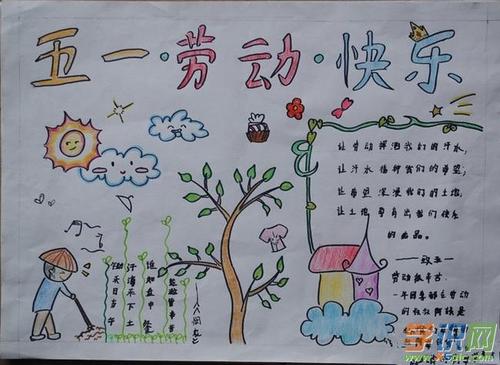 五一·劳动·快乐
让劳动挥洒我们的汗水,
让汗水播种我们的希望;
让希望深浸我们的土地,
让土地孕育出我们快乐
的
品。
劳动最辛苦
一年四季都在劳动
的校工阿姨是
锄禾日当午
汗滴禾下土
谁知盘中餐
粒粒皆辛苦
——《悯农》
学识网